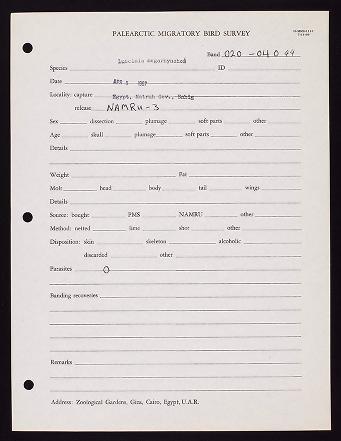 PALEARCTIC MIGRATORY BIRD SURVEY
Band 020-040 99
Species Luscinia megarhynchos ID
Date APR 5 1967
Locality: capture Egypt, Matruh Gov., Bahig
release NAMRU-3
Sex dissection plumage soft parts other
Age skull plumage soft parts other
Details
Weight Fat
Molt head body tail wings
Details
Source: bought PMS NAMRU other
Method: netted lime shot other
Disposition: skin skeleton alcoholic
discarded other
Parasites 0
Banding recoveries
Remarks
Address: Zoological Gardens, Giza, Cairo, Egypt, U.A.R.